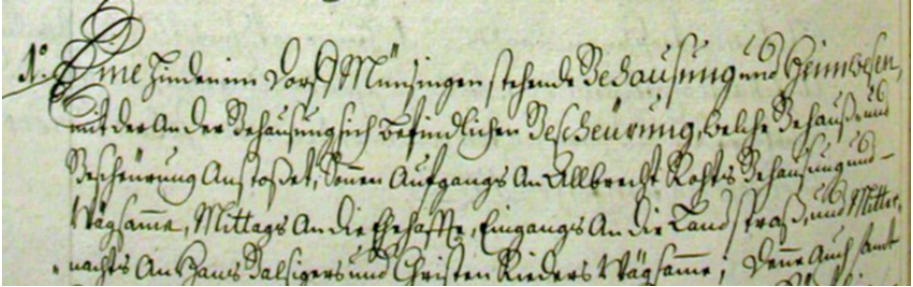 1.° Eine hinden im Dorff Münsingen stehende Behausung und Heimwesen,
mit der An der Behausung sich befindlichen Bescheürung, welche Behaus- und
Bescheürung Anstoßet, Sonnen Aufgangs An Albrecht Rohts Behausung und
Wägsam̄e, Mittags An die Ehehaffte, Eingangs An die Landstraß, und Mitter-
nachts An Hans Dalsigers und Christen Rieders Wägsam̄e; Denne Auch samt